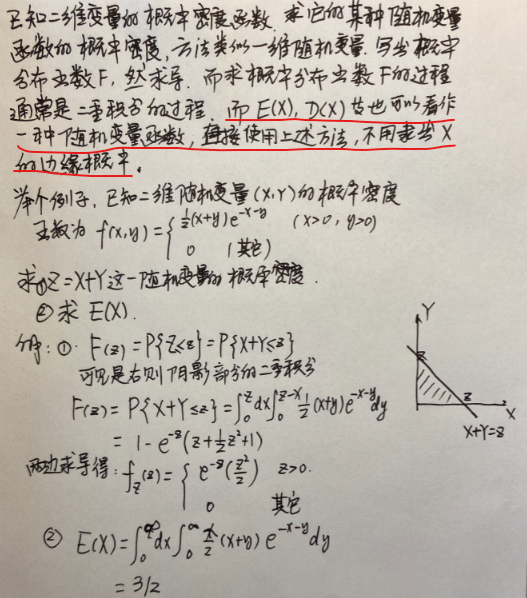 已知二维变量的概率密度函数,求它的某种随机变量
函数的概率密度,方法类似一维随机变量.写出概率
分布函数F,然求导.而求概率分布函数F的过程
通常是二重积分的过程.而E(X),D(X)其也可以看作
一种随机变量函数,直接使用上述方法,不用求出X
的边缘概率.
举个例子,已知二维随机变量(X,Y)的概率密度
函数为 f(x,y)={ 1/2(x+y)e^{-x-y} (x>0,y>0)
0 (其它)
求①Z=X+Y这一随机变量的概率密度.
②求 E(X).
解:①. F(z)=P{Z≤z}=P{X+Y≤z}
可见是右则阴影部分的二重积分
F(z)=P{X+Y≤z}=∫_0^z dx∫_0^{z-x} 1/2(x+y)e^{-x-y}dy
=1-e^{-z}(z+1/2z²+1)
两边求导得: f_Z(z)={ e^{-z}(z²/2) z>0.
0 其它
② E(X)=∫_0^∞ dx∫_0^∞ x/2(x+y)e^{-x-y}dy
=3/2
Y
z
z
X
X+Y=z